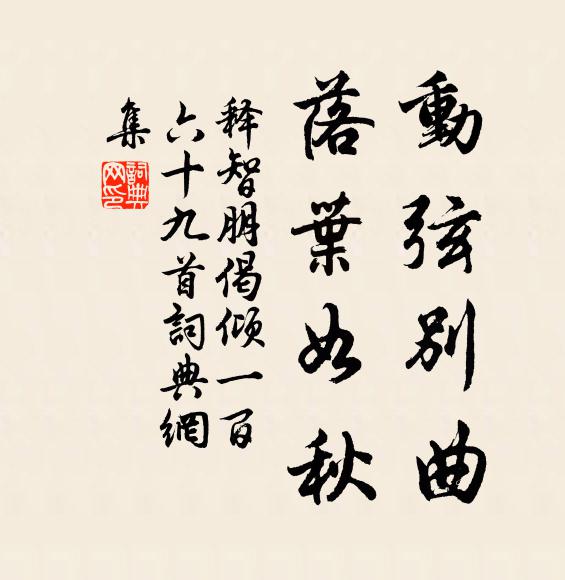 動弦別曲
落葉如秋
释智朋偈傾一百
六十九首詞典網
集
詞典
网印